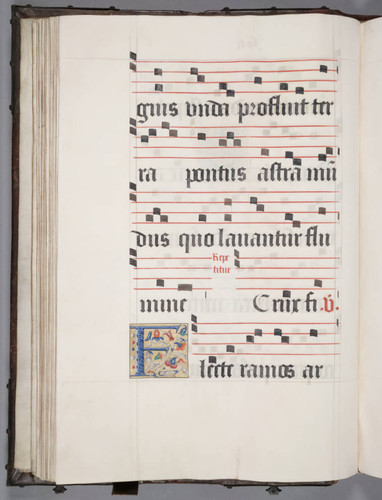 guis vnda profluit ter
ra pontus astra mū
dus quo lauantur flu
Repe
titur
mine Crux fi .v̄.
Flecte ramos ar